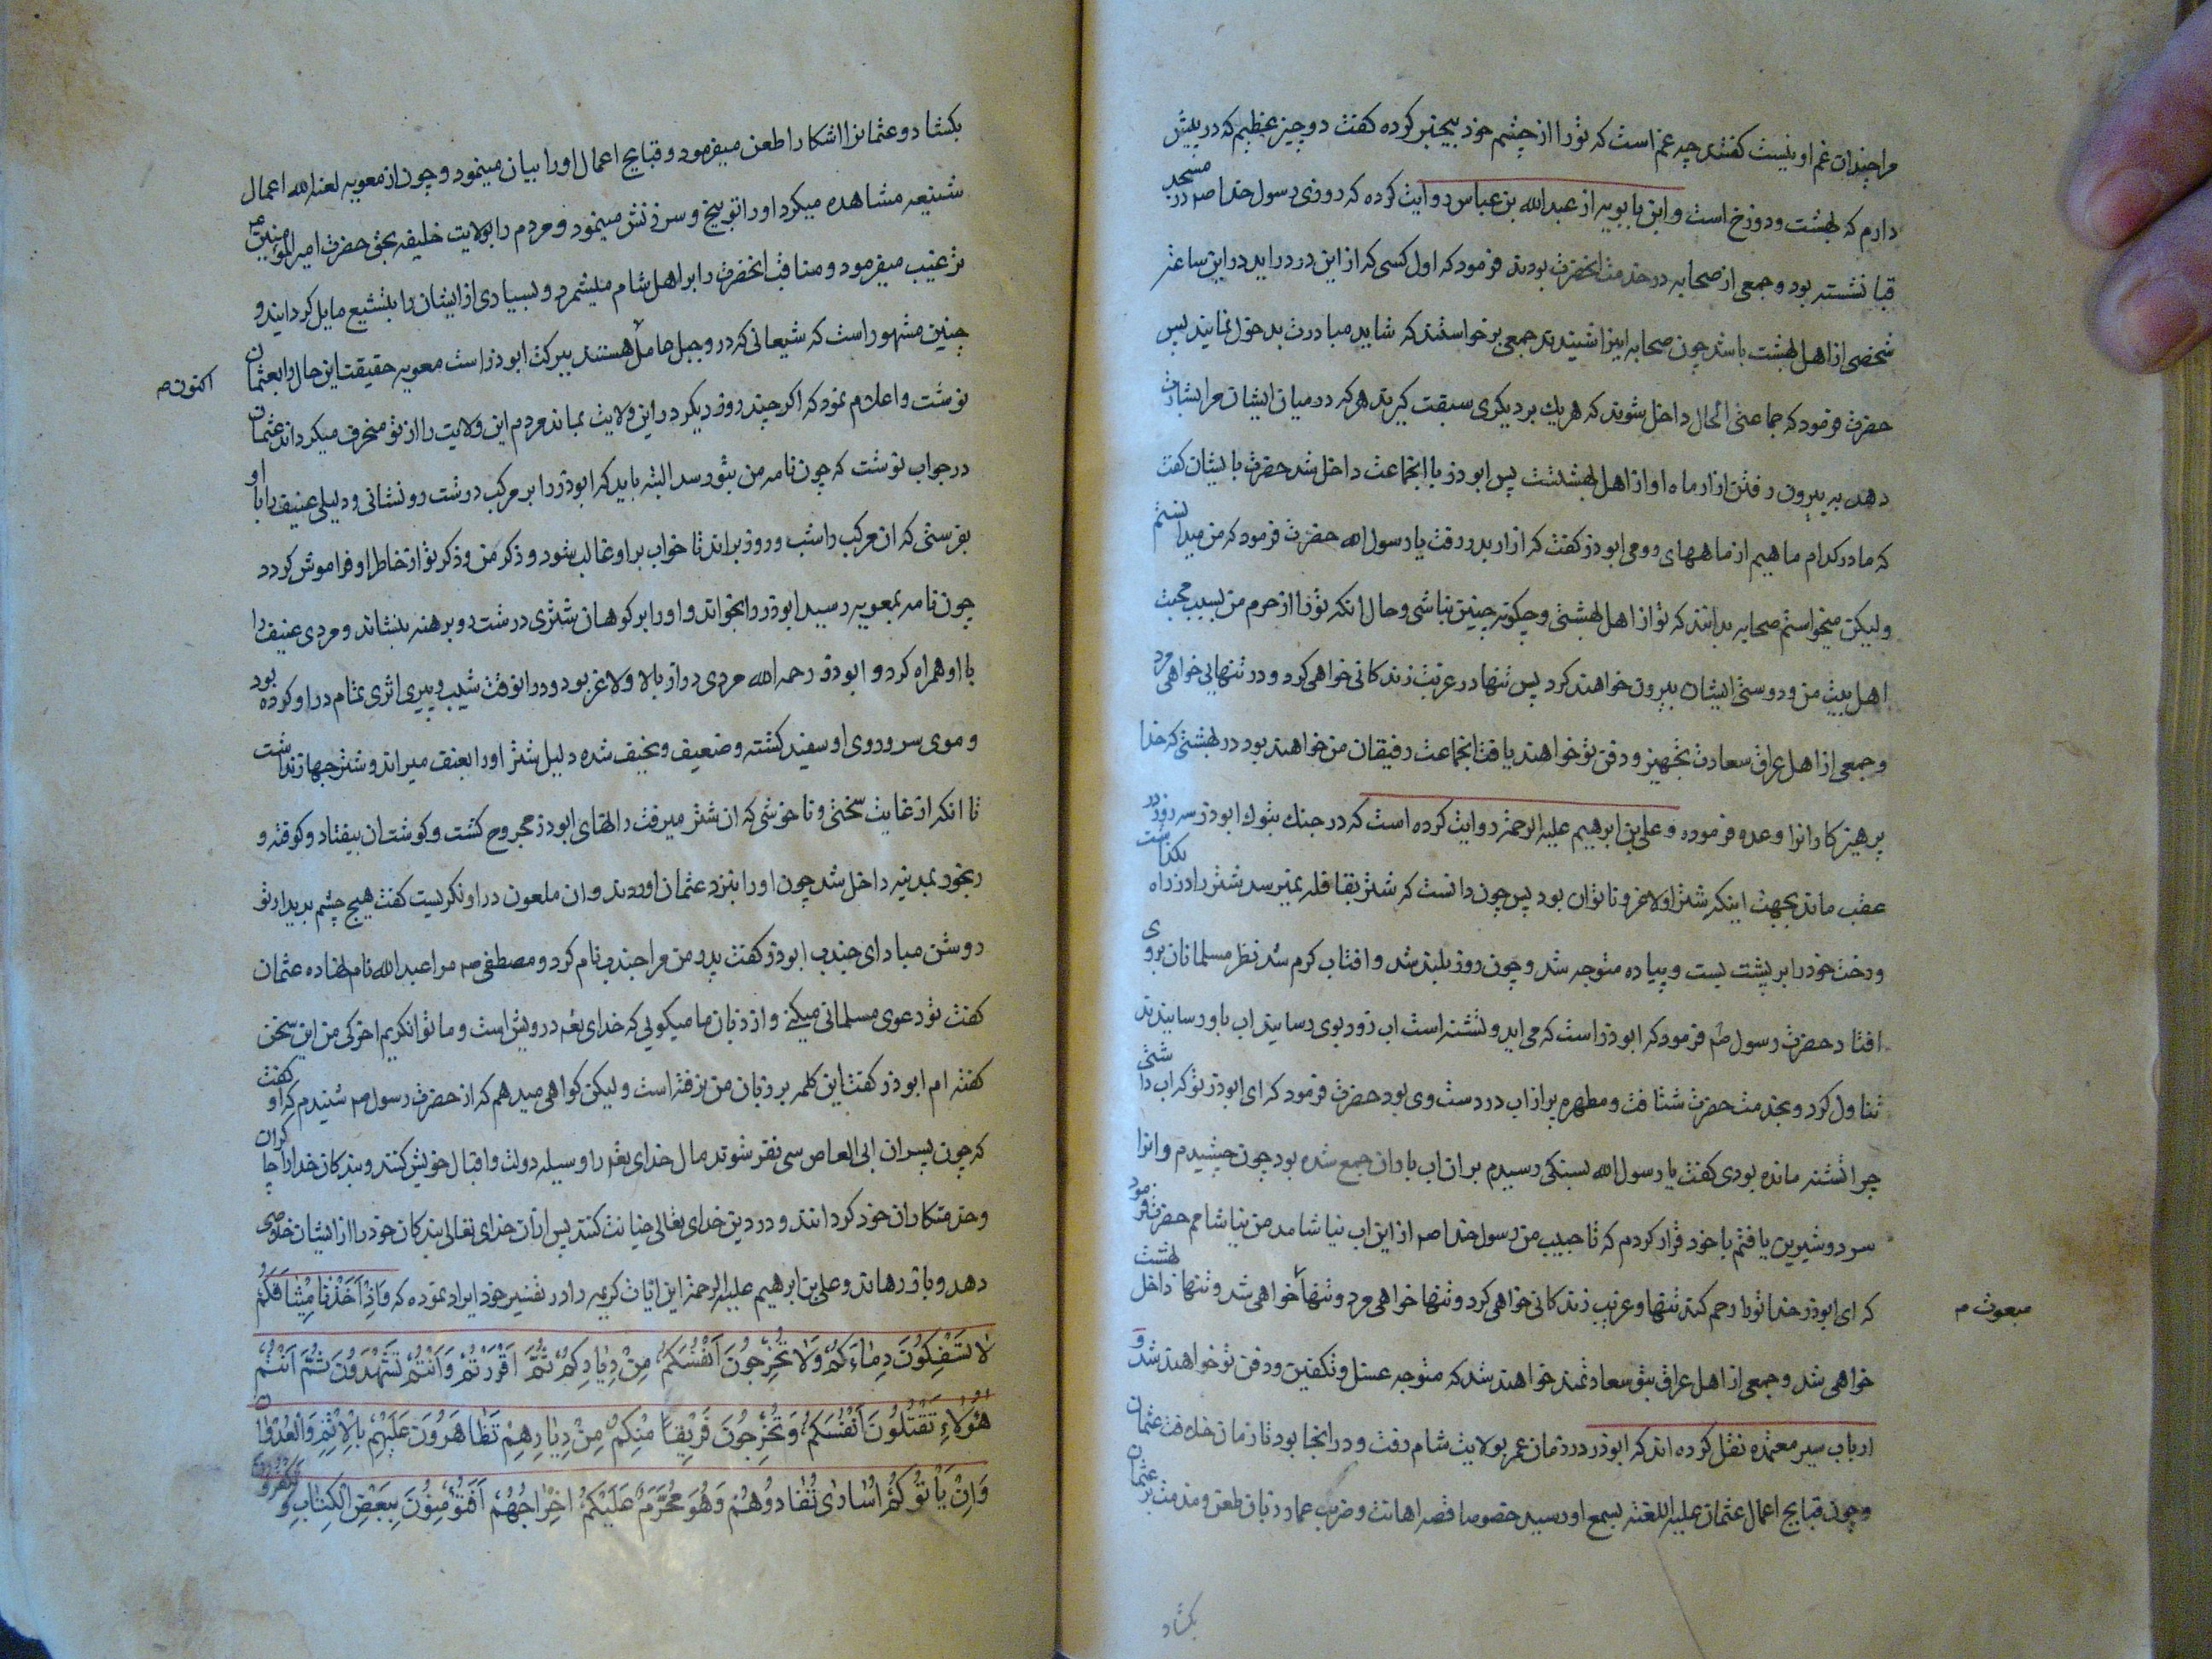 مرا چندان غم او نیست کفتند چه غم است که تو را از چشم خود بیخبر کرده کفت دو چیز عظیم که در پیش
دارم که بهشت و دوزخ است و ابن بابویه از عبدالله بن عباس روایت کرده که روزی رسول خدا صم در مسجد
قبا نشسته بود و جمعی از صحابه در خدمت انحضرت بودند فرمود که اول کسی که از این در دراید در این ساعت
شخصی از اهل بهشت باشد چون صحابه اینرا شنیدند جمعی برخواستند که شاید مبادرت بدخول نمایند پس
حضرت فرمود که جماعتی الحال داخل شوند که هریك بر دیکری سبقت کیرند هرکه در میان ایشان مرا بشارت
دهد به بیرون رفتن ازار ماه او از اهل بهشتست پس ابوذر با انجماعت داخل شد حضرت بایشان کفت
که ما در کدام ماهیم از ماههای رومی ابوذر کفت که ازار بدر رفت یا رسول الله حضرت فرمود که من میدانستم
ولیکن میخواستم صحابه بدانند که تو از اهل بهشتی و چکونه چنین نباشی و حال انکه تو را از حرم من بسبب محبت
اهل بیت من و دوستی ایشان بیرون خواهند کرد پس تنها در غربت زندکانی خواهی کرد و در تنهایی خواهی مرد
و جمعی از اهل عراق سعادت تجهیز و دفن تو خواهند یافت انجماعت رفیقان من خواهند بود در بهشتی که خدا
پرهیزکارانرا وعده فرموده و علی بن ابرهیم علیه الرحمة روایت کرده است که در جنك تبوك ابوذر سه روز در
عقب ماند بجهت اینکه شتر او لاغر و ناتوان بود پس چون دانست که شتر بقافله نمیرسد شتر را در راه بکذاشت
و رخت خود را بر پشت بست و پیاده متوجه شد و چون روز بلند شد و افتاب کرم شد نظر مسلمانان بروی
افتاد حضرت رسول صم فرمود که ابوذر است که می اید و تشنه است اب زود بوی رسانید اب باو رسانیدند
تناول کرد و بخدمت حضرت شتافت و مطهره پر از اب در دست وی بود حضرت فرمود که ای ابوذر تو که اب داشتی
چرا تشنه مانده بودی کفت یا رسول الله بسنکی رسیدم بران اب باران جمع شده بود چون چشیدم و انرا
سرد و شیرین یافتم با خود قرار کردم که تا حبیب من رسول خدا صم از این اب نیاشامد من نیاشامم حضرت فرمود
که ای ابوذر خدا تو را رحم کند تنها و غریب زندکانی خواهی کرد و تنها خواهی مرد و تنها خواهی شد و تنها داخل بهشت
مبعوث م
خواهی شد و جمعی از اهل عراق بتو سعادتمند خواهند شد که متوجه غسل و تکفین و دفن تو خواهند شد و
ارباب سیر معتمده نقل کرده اند که ابوذر در زمان عمر بولایت شام رفت و در انجا بود تا زمان خلافت عثمان
و چون قبایح اعمال عثمان علیه اللعنه بسمع او رسید خصوصا قصه اهانت و ضرب عمار زبان طعن و مذمت بر عثمان
بکشاد
بکشاد و عثمانرا اشکارا طعن میفرمود و قبایح اعمال او را بیان مینمود و چون از معویه لعنه الله اعمال
شنیعه مشاهده میکرد او را توبیخ و سرزنش مینمود و مردم را بولایت خلیفه بحق حضرت امیر المؤمنین ع
ترغیب میفرمود و مناقب انحضرت را بر اهل شام میشمرد و بسیاری از ایشان را بتشیع مایل کردانید و
چنین مشهور است که شیعانی که در و جبل عامل هستند ببرکت ابوذر است معویه حقیقت این حال را بعثمان
اکنون صم
نوشت و اعلام نمود که اکر چند روز دیکر در این ولایت بماند مردم این ولایت را از تو منحرف میکرداند عثمان
در جواب نوشت که چون نامه من بتو رسد البته باید که ابوذر را بر مرکب درشت رو نشانی و دلیلی عنیف را با او
بفرستی که ان مرکب را شب و روز براند تا خواب بر او غالب شود و ذکر من و ذکر تو از خاطر او فراموش کردد
چون نامه بمعویه رسید ابوذر را بخواند و او را بر کوهان شتری درشت رو برهنه بنشاند و مردی عنیف را
با او همراه کرد و ابوذر رحمه الله مردی دراز بالا و لاغر بود و در انوقت شیب و پیری اثری تمام در او کرده بود
و موی سر و روی او سفید کشته و ضعیف و نحیف شده دلیل شتر او را بعنف میراند و شتر جهاز نداشت
تا انکه از غایت سختی و ناخوشی که ان شتر میرفت رانهای ابوذر مجروح کشت و کوشت ان بیفتاد و کوفته و
رنجور بمدینه داخل شد چون او را بنزد عثمان اوردند و ان ملعون در او نکریست کفت هیچ چشم بدیدار تو
روشن مباد ای جندب ابوذر کفت پدر من مرا جندب نام کرد و مصطفی صم مرا عبدالله نام نهاده عثمان
کفت تو دعوی مسلمانی میکنے و از زبان ما میکویی که خدای تعه درویش است و ما توانکریم اخر کی من این سخن
کفته ام ابوذر کفت این کلمه بر زبان من نرفته است ولیکن کواهی میدهم که از حضرت رسول صم شنیدم که او کفت
که چون پسران ابی العاص سی نفر شوند مال خدای تعه را وسیله دولت و اقبال خویش کنند و بندکان خدا را چاکران
و خدمتکاران خود کردانند و در دین خدای تعالی خیانت کنند پس ازان خدای تعالی بندکان خود را از ایشان خلاصی
دهد و باز رهاند و علی بن ابرهیم علیه الرحمة این ایات کریمه را در تفسیر خود ایراد نموده که وَاِذْ اَخَذْنٰا مِیثٰاقَکُمْ
لٰا تَسْفِکُونَ دِمٰاءَکُمْ وَلٰا تُخْرِجُونَ اَنْفُسَکُمْ مِنْ دِیٰارِکُمْ ثُمَّ اَقْرَرْتُمْ وَاَنْتُمْ تَشْهَدُونَ ثُمَّ اَنْتُمْ
هٰؤُلاءِ تَقْتُلُونَ اَنْفُسَکُمْ وَتُخْرِجُونَ فَرِیقاً مِنْکُمْ مِنْ دِیٰارِهِمْ تَظٰاهَرُونَ عَلَیْهِمْ بِالْاِثْمِ وَالْعُدْوٰانِ
وَاِنْ یَأْتُوکُمْ اُسٰارٰی تُفٰادُوهُمْ وَهُوَ مُحَرَّمٌ عَلَیْکُمْ اِخْرٰاجُهُمْ اَفَتُؤْمِنُونَ بِبَعْضِ الْکِتٰابِ وَتَکْفُرُونَ